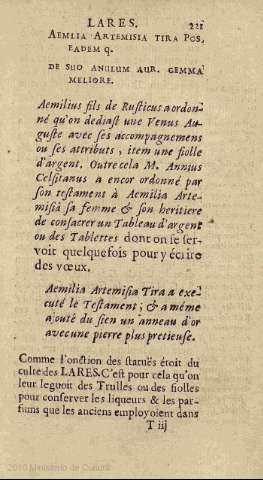 LARES. 221
AEMLIA ARTEMISIA TIRA POS,
EADEM q.
DE SUO ANULUM AUR. GEMMA
MELIORE.
Aemilius fils de Rusticus a ordon-
né qu'on dediast une Venus Au-
guste avec ses accompagnemens
ou ses attributs, item une fiolle
d'argent. Outre cela M. Annius
Celsitanus a encor ordonné par
son testament à Aemilia Arte-
misia sa femme & son heritiere
de consacrer un Tableau d'argent
ou des Tablettes dont on se ser-
voit quelquefois pour y écrire
des vœux.
Aemilia Artemisia Tira a exe-
cuté le Testament; & a même
ajouté du sien un anneau d'or
avec une pierre plus pretieuse.
Comme l'onction des statuës étoit du
culte des LARES. C'est pour cela qu'on
leur leguoit des Trulles ou des fiolles
pour conserver les liqueurs & les par-
fums que les anciens employoient dans
T iij
2010 Ministerio de Cultura